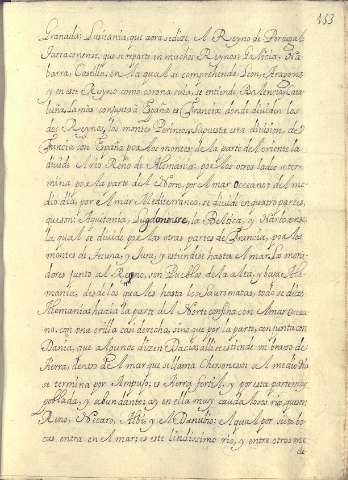 153
Granada: Lusitania, que aora se dize, el Reyno de Portugal:
Tarraconense, que se reparte en muchos Reynos: Galicia, Na
barra, Castilla, en la qual se comprehende Leon, Aragon:
y en este Reyno como corona sola, se entiende, Balencia, Cata
luña. La mas conjunta à España es Francia donde dividen los
dos Reynos, los montes Perineos. Supuesta esta division, de
Francia con España por los montes de la parte del oriente la
divide el rio Reno de Alemania: por los otros lados se ter
mina por la parte del Norte, por el mar oceano: y del me
dio dia, por el mar Mediterraneo: se divide en quatro partes,
que son: Aquitania, Lugdonense, la Belgica, y Narbonense
la qual se divide por las otras partes de Francia, por los
montes de y Jura, y estiendese hasta el mar: los mo
radores junto al Reyno, son Pueblos de la alta, y baxa Ale
mania, desde los quales hasta los Sauromatas, todo se dize
Alemania: hacia la parte del Norte confina con el mar Ocea
no, con una orilla casi derecha, sino que por la parte, con junta con
Dania, que algunos dizen Dacia, alli se estiende un braço de
tierra, dentro del mar que se llama Chersoneso: al medio dia
se termina por es tierra fertil, y por esta parte muy
poblada, y abundante; ay en ella muy caudalosos rios, que son
Reno, Nicaro, Albis, y el Danubio: el qual por siete bo
cas entra en el mar: es este lindissimo rio, y entre otros me
de